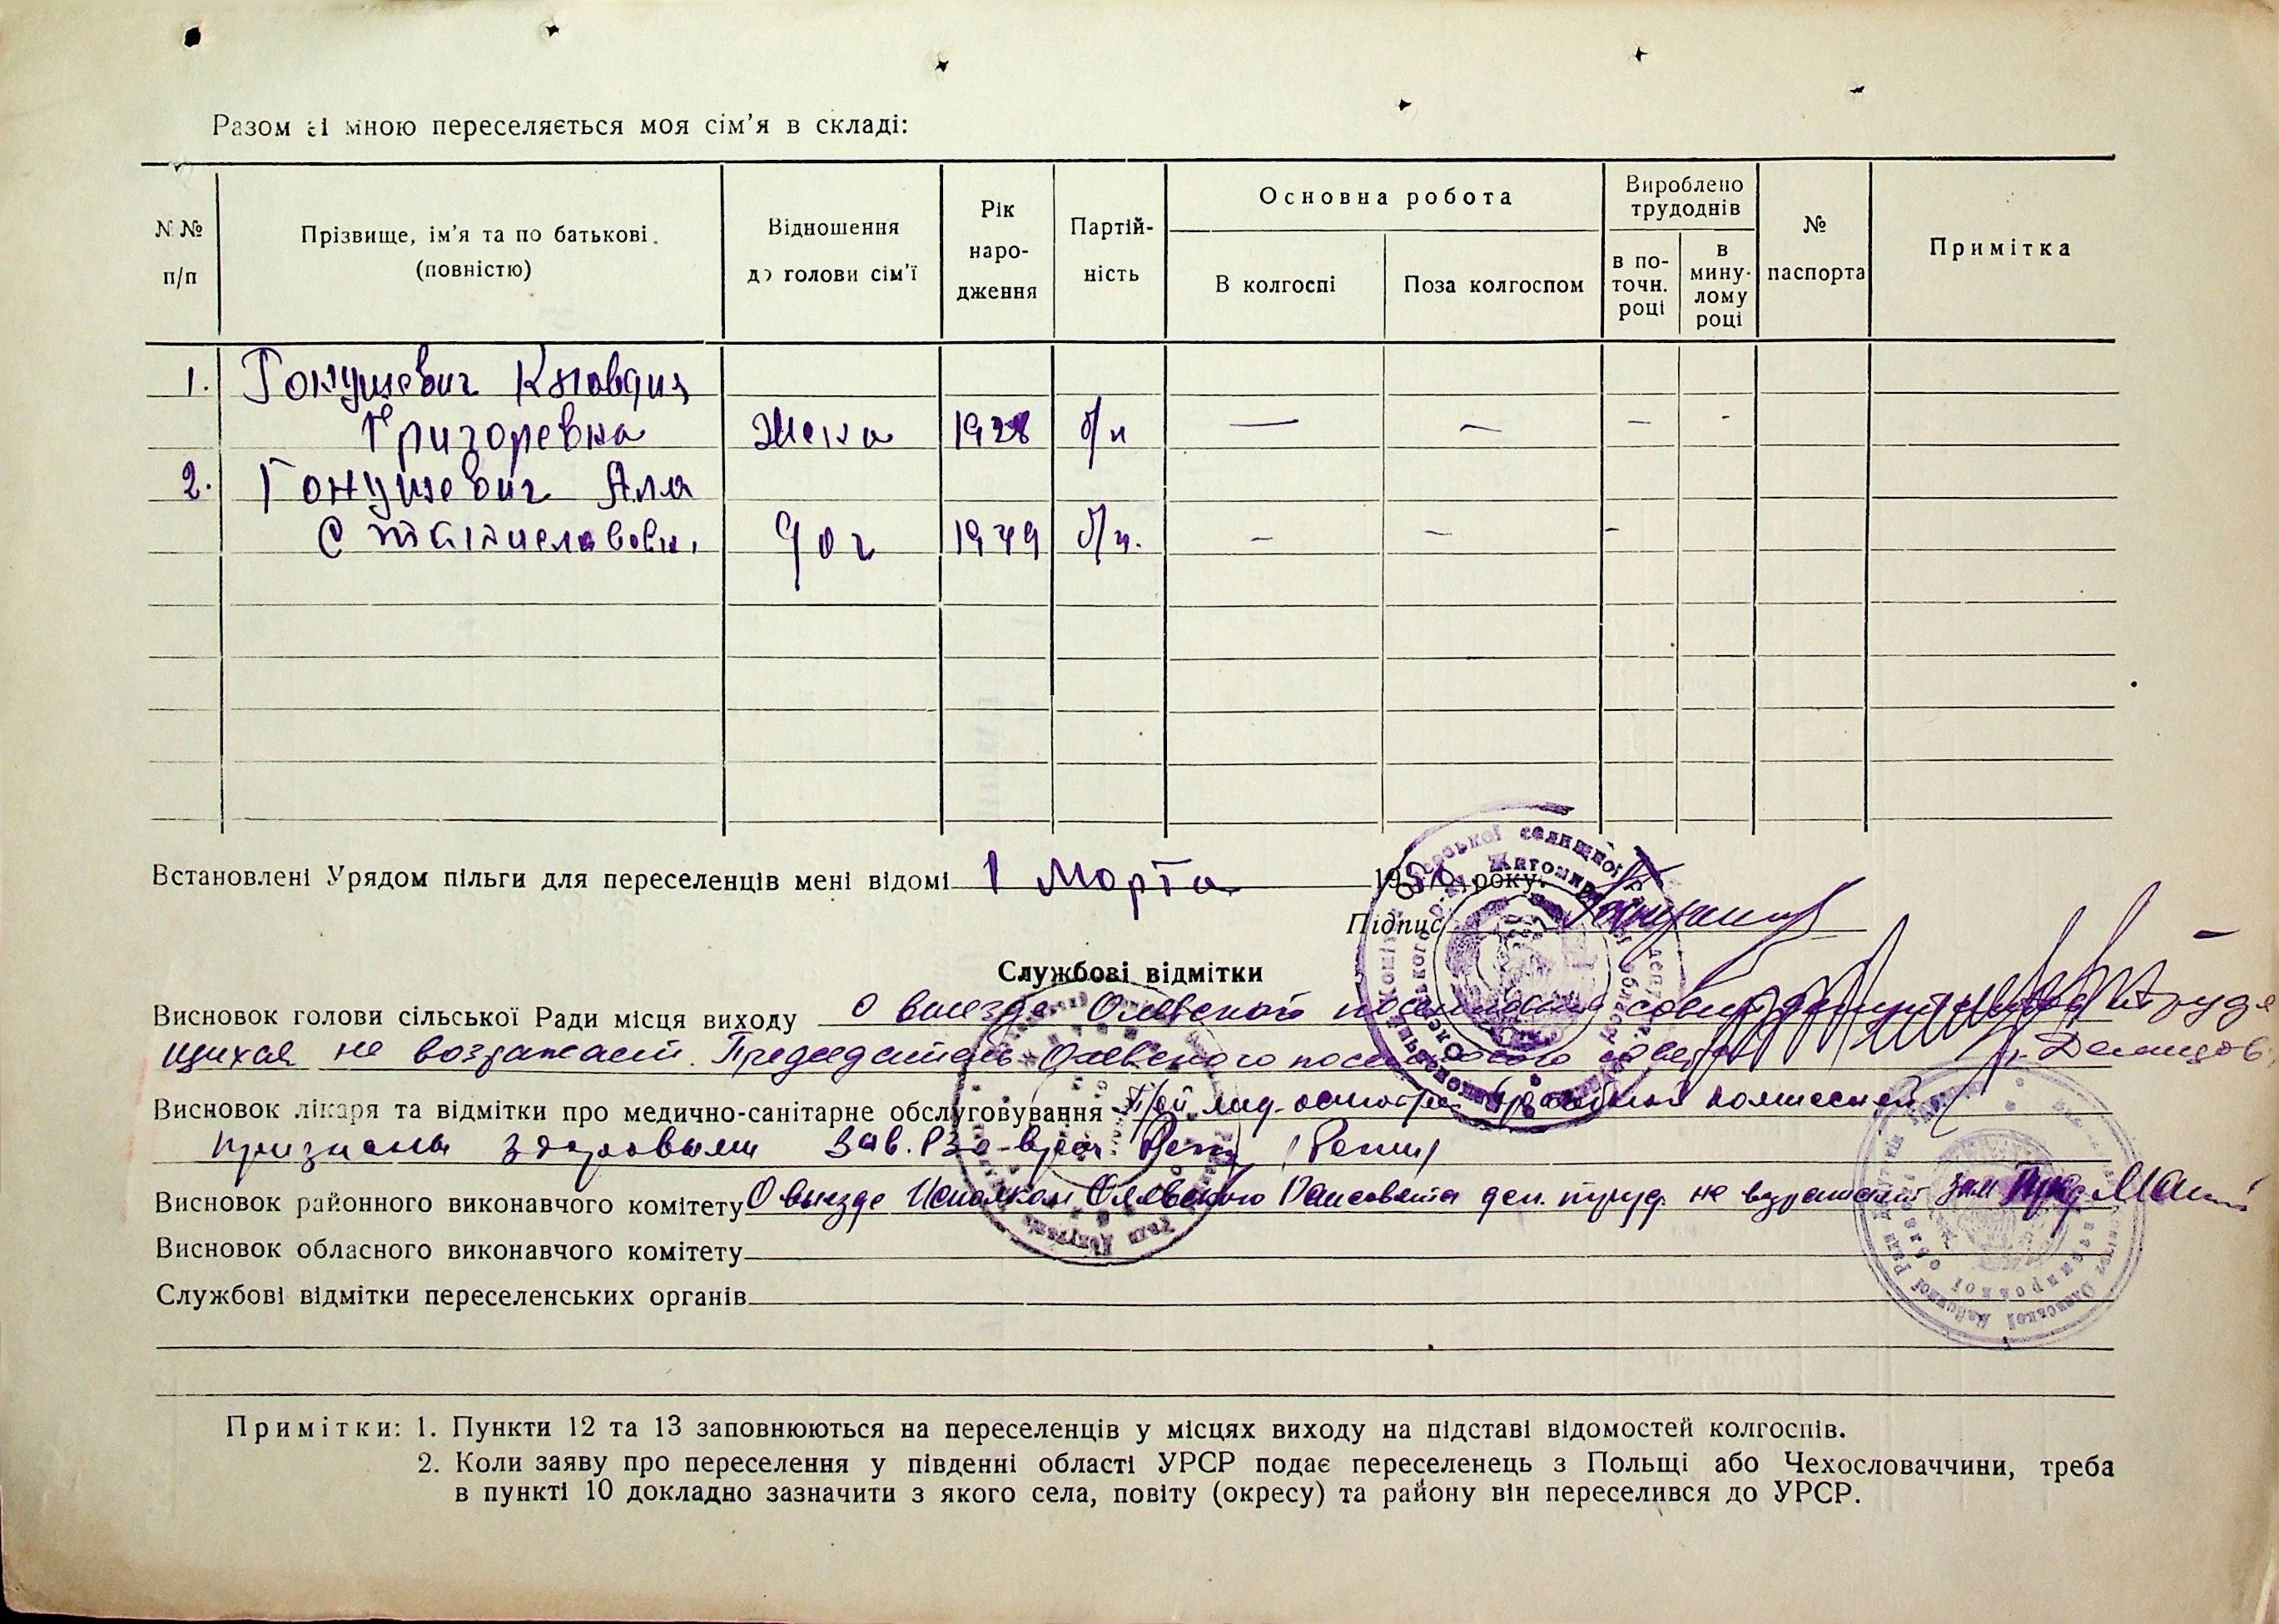 Разом зі мною переселяється моя сім'я в складі:
N №
п/п
Прізвище, ім'я та по батькові.
(повністю)
Відношення
до голови сім'ї
Рік
наро-
дження
Партій-
ність
Основна робота
В колгоспі
Поза колгоспом
Вироблено
трудоднів
в по-
точн.
році
в
мину-
лому
році
№
паспорта
Примітка
1. Гонушевич Клавдия
Григоревна Жена 1928 б/п — — — -
2. Гонушевич Алла
Станиславовн. доч 1949 б/п. - - -
Встановлені Урядом пільги для переселенців мені відомі 1 Марта 195 року.
Підпис
Службові відмітки
Висновок голови сільської Ради місця виходу О выезде Олевского поселкового совет депутатов Трудя
щихся не возражает. Председатель Олевского поселкового совета
Висновок лікаря та відмітки про медично-санітарне обслуговування комиссией
признаны здоровыми Зав. РЗо-врач
Висновок районного виконавчого комітету О выезде Исполком Олевского Райсовета деп. труд. не возражает Зам Пред
Висновок обласного виконавчого комітету
Службові відмітки переселенських органів
Примітки: 1. Пункти 12 та 13 заповнюються на переселенців у місцях виходу на підставі відомостей колгоспів.
2. Коли заяву про переселення у південні області УРСР подає переселенець з Польщі або Чехословаччини, треба
в пункті 10 докладно зазначити з якого села, повіту (окресу) та району він переселився до УРСР.